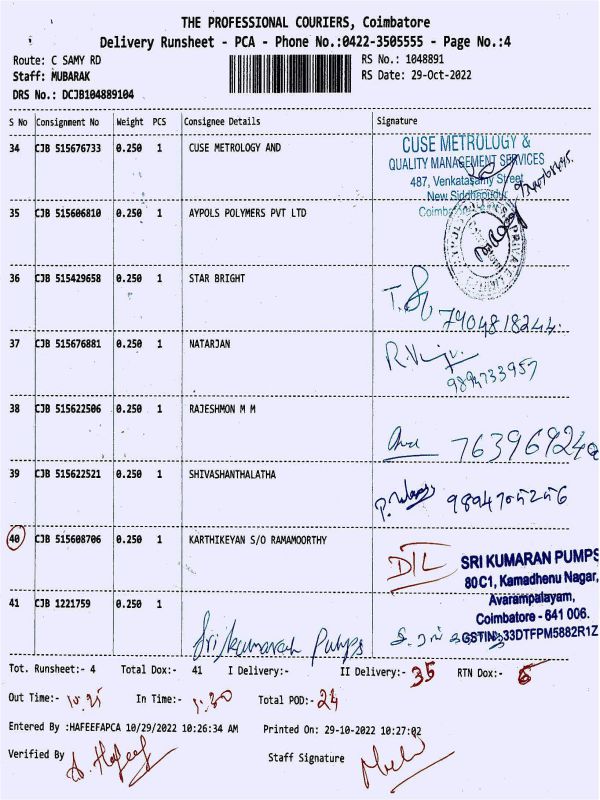 THE PROFESSIONAL COURIERS, Coimbatore
Delivery Runsheet - PCA - Phone No.:0422-3505555 - Page No.:4
Route: C SAMY RD
RS No.: 1048891
Staff: MUBARAK
RS Date: 29-Oct-2022
DRS No.: DCJB104889104
S No Consignment No Weight PCS Consignee Details Signature
34 CJB 515676733 0.250 1 CUSE METROLOGY AND
CUSE METROLOGY &
QUALITY MANAGEMENT SERVICES
487, Venkatasamy Street
New Siddhapudur
35 CJB 515606810 0.250 1 AYPOLS POLYMERS PVT LTD
36 CJB 515429658 0.250 1 STAR BRIGHT
7904818244
37 CJB 515676881 0.250 1 NATARJAN
9894733957
38 CJB 515622506 0.250 1 RAJESHMON M M
39 CJB 515622521 0.250 1 SHIVASHANTHALATHA
9894705256
40 CJB 515608706 0.250 1 KARTHIKEYAN S/O RAMAMOORTHY
DTL
SRI KUMARAN PUMPS
80C1, Kamadhenu Nagar,
Avarampalayam,
Coimbatore - 641 006.
GSTIN:33DTFPM5882R1Z
41 CJB 1221759 0.250 1
Sri kumaran Pumps
Tot. Runsheet:- 4 Total Dox:- 41 I Delivery:- II Delivery:- 35 RTN Dox:- 6
Out Time:- 10.25 In Time:- 1:30 Total POD:- 24
Entered By :HAFEEFAPCA 10/29/2022 10:26:34 AM Printed On: 29-10-2022 10:27:02
Verified By A. Hafeef Staff Signature